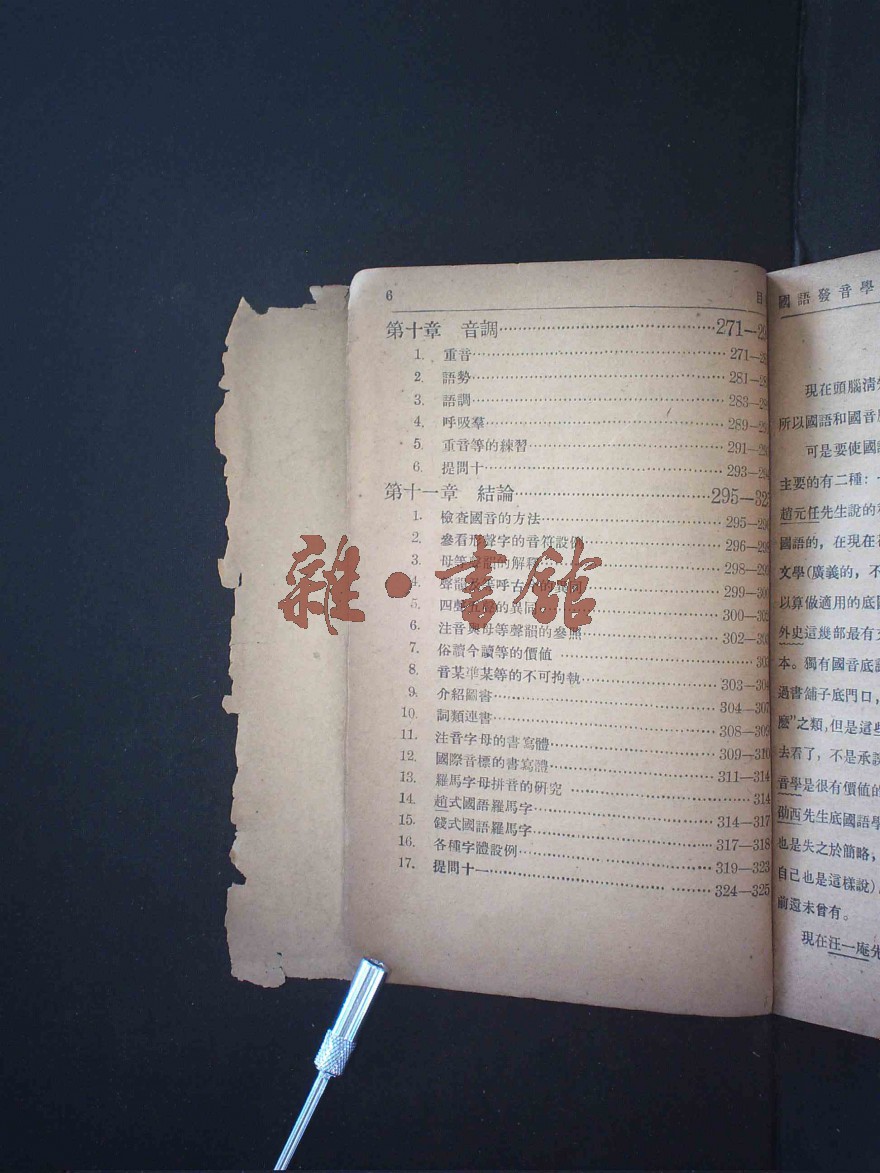 6 目
第十章 音調 271—2
1. 重音 271—2
2. 語勢 281—2
3. 語調 283—2
4. 呼吸羣 289—2
5. 重音等的練習 291—2
6. 提問十 293—29
第十一章 結論 295—325
1. 檢查國音的方法 295—296
2. 參看形聲字的音符設例 296—298
3. 母等聲韻的解釋 298—299
4. 聲韻及等呼古今的異同 299—300
5. 四聲五聲的異同 300—302
6. 注音與母等聲韻的參照 302—303
7. 俗讀今讀等的價値 303
8. 音某準某等的不可拘執 303—304
9. 介紹圖書 304—307
10. 詞類連書 308—309
11. 注音字母的書寫體 309—310
12. 國際音標的書寫體 311—314
13. 羅馬字母拼音的研究 314
14. 趙式國語羅馬字 314—317
15. 錢式國語羅馬字 317—318
16. 各種字體設例 319—323
17. 提問十一 324—325
國語發音學
現在頭腦淸
所以國語和國音
可是要使國語
主要的有二種：
趙元任先生說的
國語的，在現在
文學(廣義的，不
以算做適用的底
外史這幾部最有
本。獨有國音底
過書舖子底門口，
麽”之類，但是這些
去看了，不是承
音學是很有價値的
劭西先生底國語學
也是失之於簡略，
自己也是這樣說)
前還未曾有。
現在汪一庵先
雜·書館